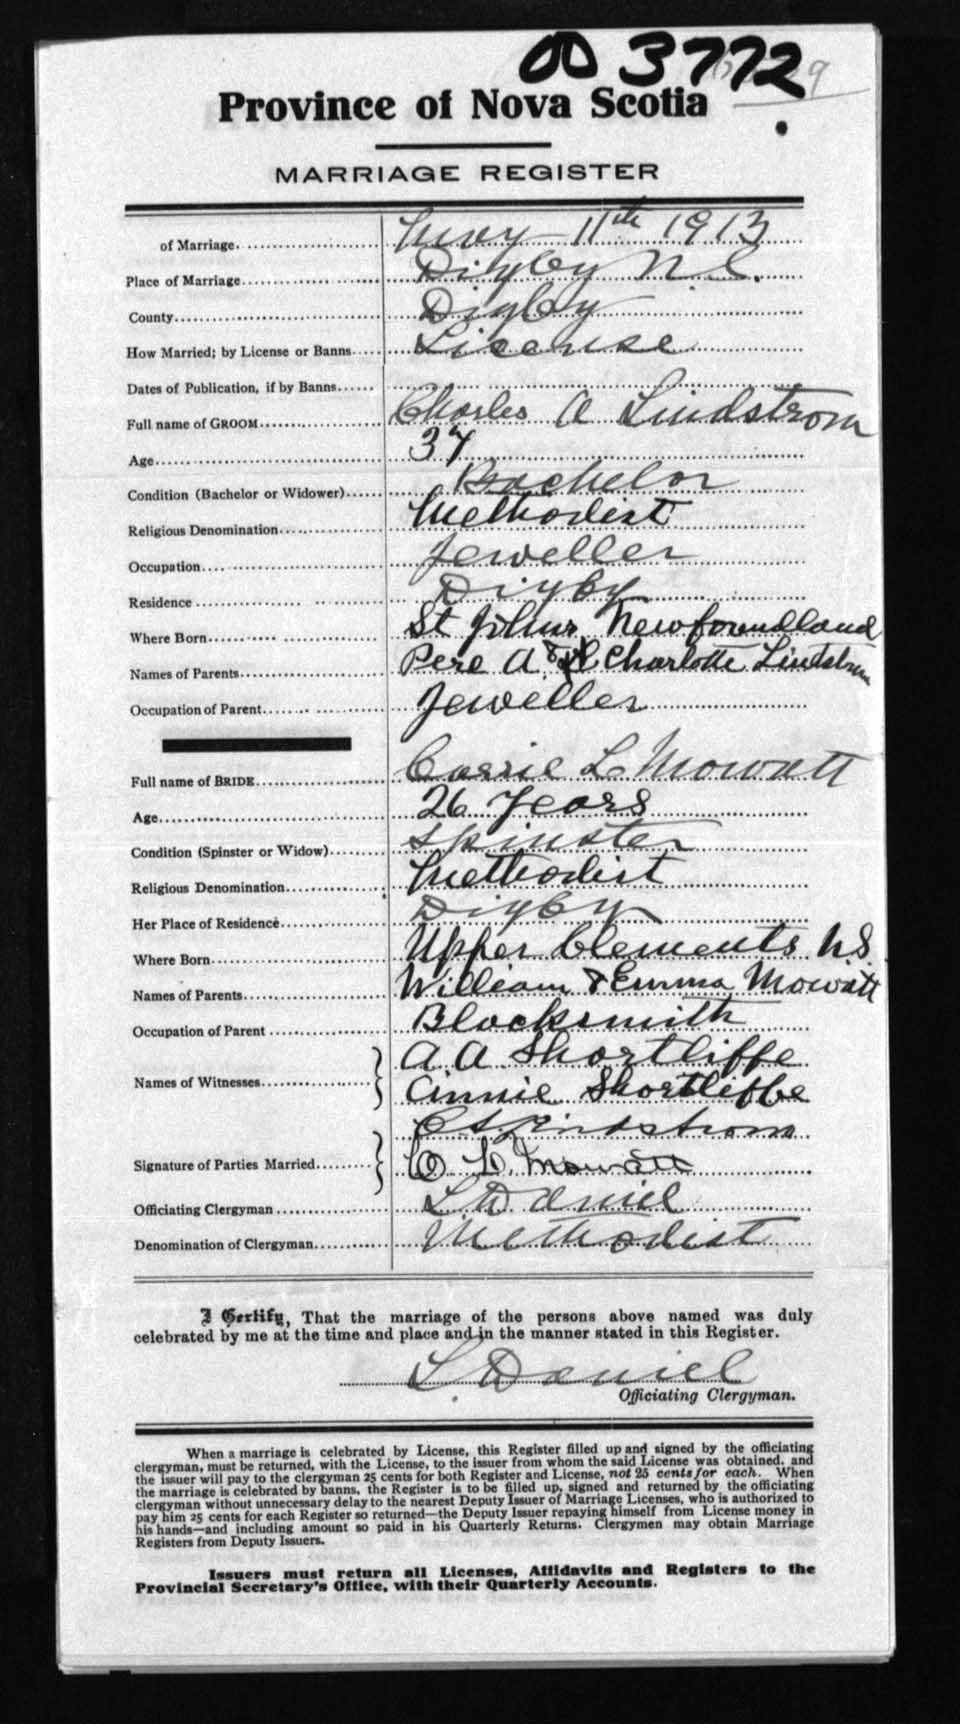 OO 3772.
Province of Nova Scotia
MARRIAGE REGISTER
of Marriage 11th 1913
Place of Marriage Digby N.S.
County Digby
How Married; by License or Banns License
Dates of Publication, if by Banns
Full name of GROOM Charles A Lindstrom
Age 37
Condition (Bachelor or Widower) Bachelor
Religious Denomination Methodist
Occupation Jeweller
Residence Digby
Where Born St Johns Newfoundland
Names of Parents Pere A & Charlotte Lindstrom
Occupation of Parent Jeweller
Full name of BRIDE Carrie L Mowatt
Age 26 years
Condition (Spinster or Widow) Spinster
Religious Denomination Methodist
Her Place of Residence Digby
Where Born Upper Clements N.S.
Names of Parents William & Emma Mowatt
Occupation of Parent Blacksmith
Names of Witnesses A A Shortliffe
Annie Shortliffe
Signature of Parties Married Lindstrom
C L. Mowatt
Officiating Clergyman L Daniel
Denomination of Clergyman Methodist
I Certify, That the marriage of the persons above named was duly
celebrated by me at the time and place and in the manner stated in this Register.
L. Daniel
Officiating Clergyman.
When a marriage is celebrated by License, this Register filled up and signed by the officiating
clergyman, must be returned, with the License, to the issuer from whom the said License was obtained. and
the issuer will pay to the clergyman 25 cents for both Register and License, not 25 cents for each. When
the marriage is celebrated by banns, the Register is to be filled up, signed and returned by the officiating
clergyman without unnecessary delay to the nearest Deputy Issuer of Marriage Licenses, who is authorized to
pay him 25 cents for each Register so returned—the Deputy Issuer repaying himself from License money in
his hands—and including amount so paid in his Quarterly Returns. Clergymen may obtain Marriage
Registers from Deputy Issuers.
Issuers must return all Licenses, Affidavits and Registers to the
Provincial Secretary's Office, with their Quarterly Accounts.